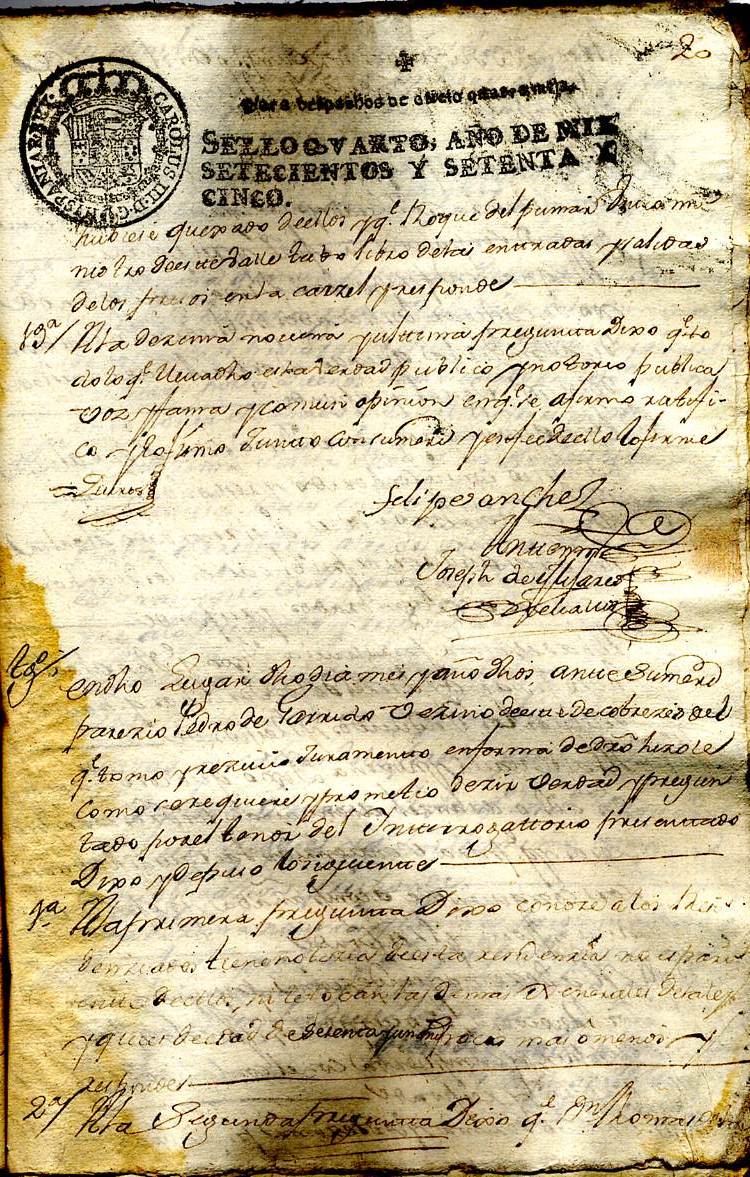 20
CAROLUS III D G HISPANIAR REX
Para despachos de oficio quatro mrs.
SELLO QVARTO, AÑO DE MIL
SETECIENTOS Y SETENTA Y
CINCO.
hubiese quexado de ellos y q.e Roque del pumar
de este Valle tubo libro de las entradas y salidas
de los presos en la carzel y responde
19ª/ A la dezima novena y ultima pregunta Dixo q.e to
do lo q.e lleva dho es la verdad publico y notorio publica
voz y fama y comun opinion en q.e se afirmo ratifi-
co y lo firmo junto con su mrd y en fee de ello lo firme
Quiros
Felipe Sanchez
Ante mi
Joseph de
tgo/. en dho Lugar dho dia mes y año dhos, ante su mrd
parezio Pedro de Garrido Vezino de este de Cobrezes del
q.e tomo y rezivio Juramento en forma de dro hizole
como se requiere y prometio dezir Verdad y pregun
tado por el tenor del Interrogattorio presentado
Dixo y depuso lo siguiente
1ª A la primera pregunta Dixo conoze a los
tiene notizia de esta no es pari
ente de ellos, ni le tocan las demas Generales de la ley
y que es de edad de setenta y un años poco mas ô menos y
responde
2ª/ A la Segunda pregunta Dixo q.e Dn